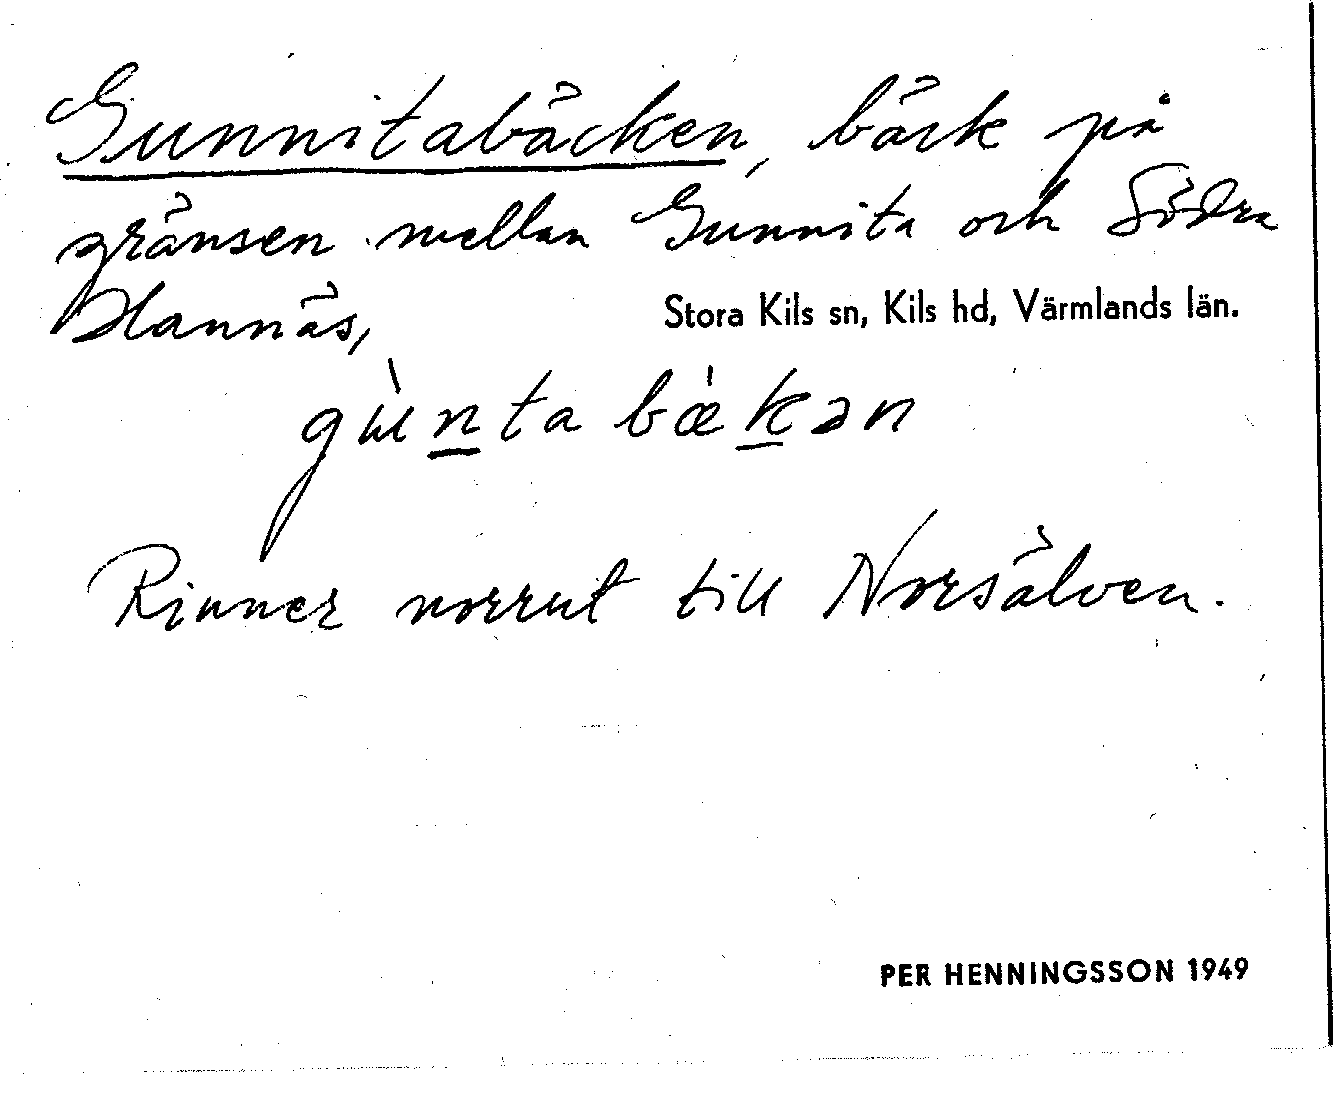 Gunnitabäcken, bäck på
gränsen mellan Gunnita och Södra
Hannäs,
Stora Kils sn, Kils hd, Värmlands län.
gùnta bǽkən
Rinner norrut till Norsälven.
PER HENNINGSSON 1949